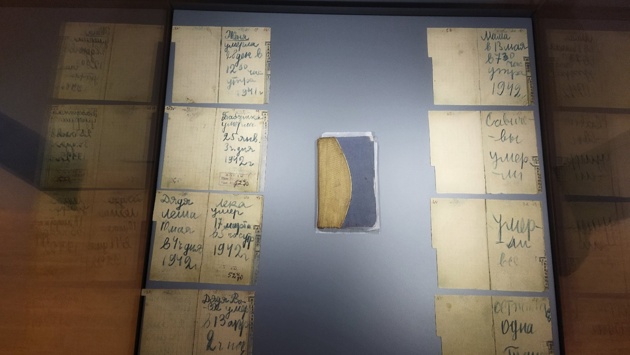 Женя
умерла
28 дек в
12 30 час
утра
1941 г
Бабушка
умерла
25 янв
3 ч дня
1942 г
Дядя
Леша
10 мая
в 4 ч дня
1942 г
Лека
умер
17 марта
в 5 час утр
1942 г
Дядя Ва-
ся умер
в 13 апр
2 ч ноч
Мама
в 13 мая
в 7 30 час
утра
1942
Савич-
-вы
умер-
-ли
Умер-
ли
все
Осталась
одна
Таня